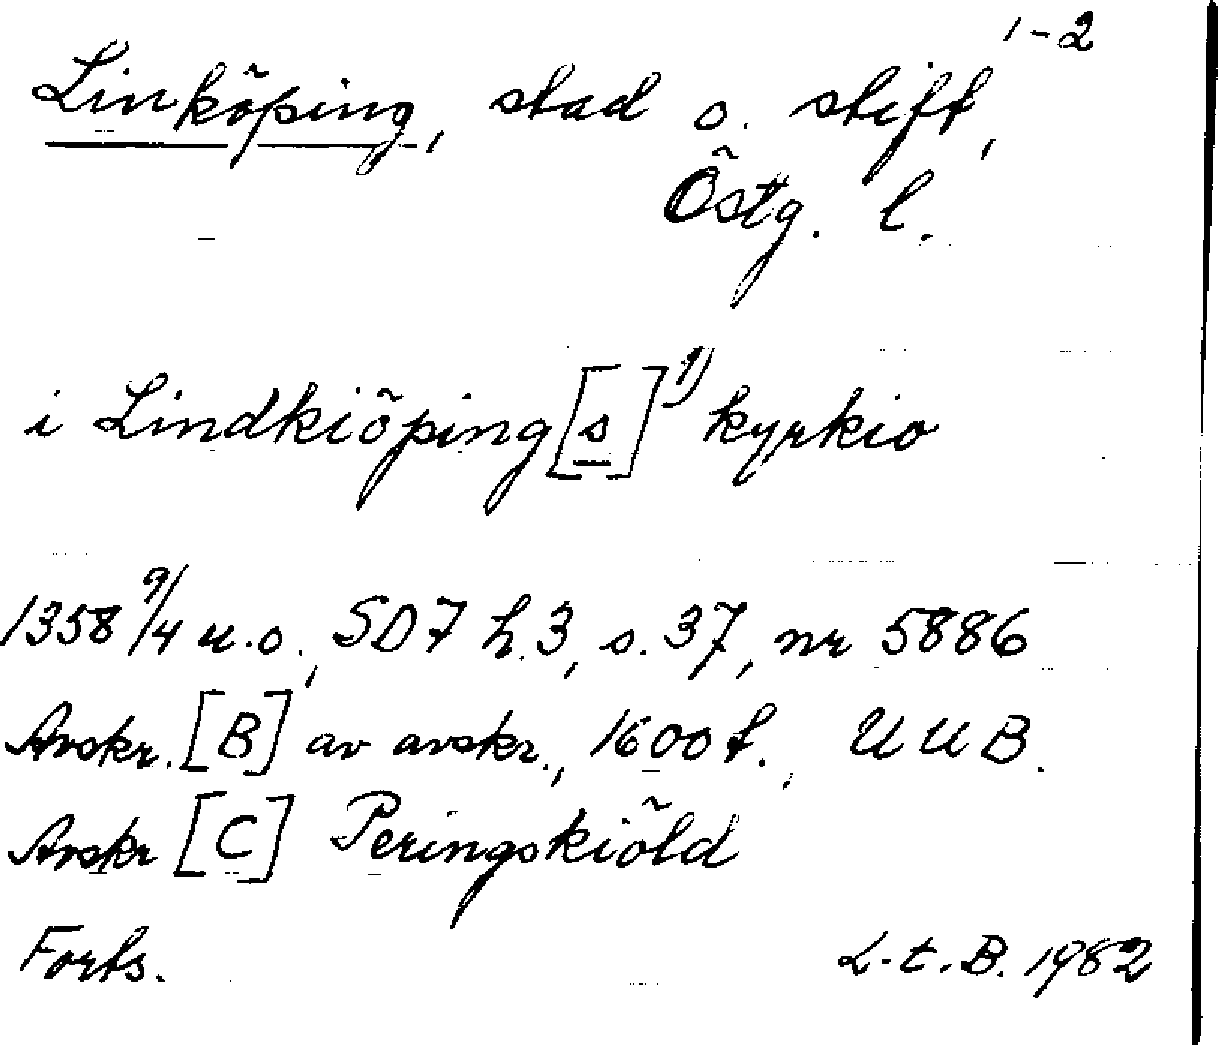 1-2
Linköping, stad o. stift,
Östg. l.
i Lindkiöping[s]¹⁾ kyrkio
1358 9/4 u.o., SD7 h.3, s.37, nr 5886
Avskr. [B] av avskr., 1600t., UUB.
Avskr [C] Peringskiöld
Forts.
L.t.B. 1982